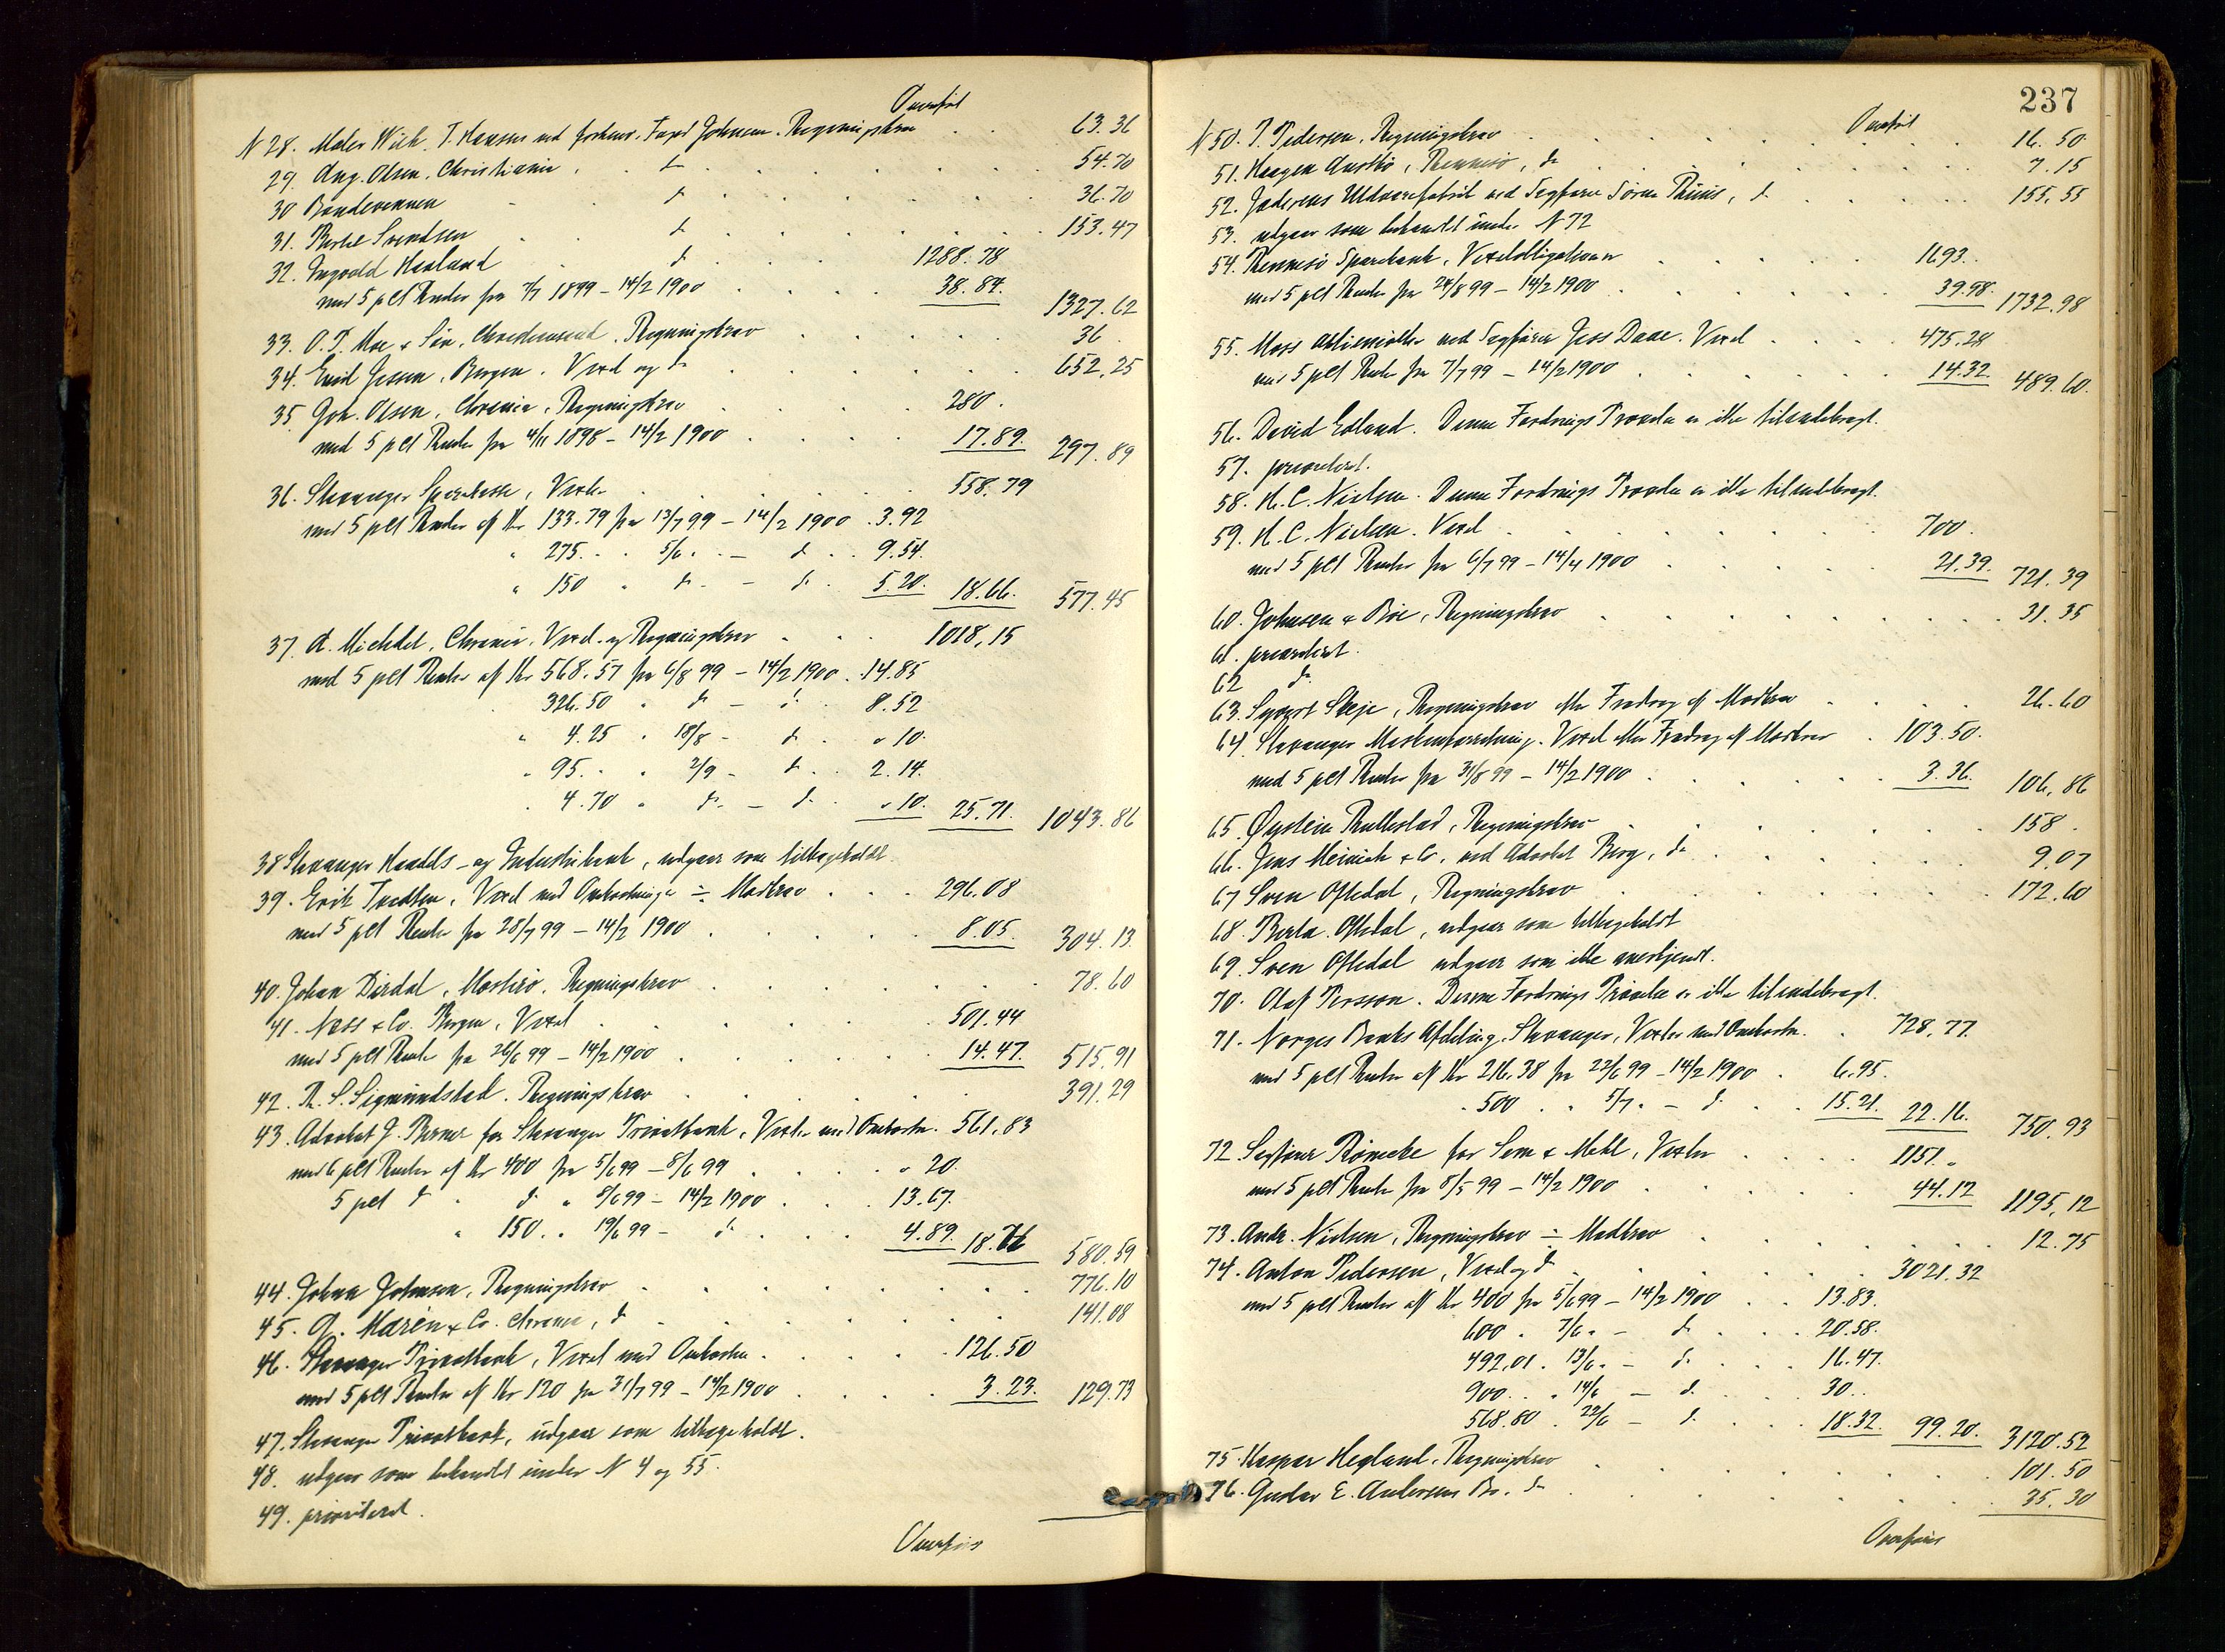 Overført
N 28. Maler Wilh. T. Hansen ved Johnsen. Regningskrav . . 63.36
29. Aug. Olsen, Christiania, do . . 54.70
30 Bondevennen do . . 36.70
31. Bertel Svendsen do . . 153.47
32. Ingvald Haaland do . . 1288.78
med 5 pCt Renter fra 7/7 1899 - 14/2 1900 . . 38.84. 1327.62
33. O. T. Moe & Søn, Christianssand. Regningskrav . . 36
34. Emil Jessen, Bergen. Vexel og do . . 652.25
35 Joh. Olsen, Chrania, Regningskrav . . 280.
med 5 pCt Renter fra 4/11 1898 - 14/2 1900 . . 17.89. 297.89
36. Stavanger Sparekasse, Vexler . . 558.79
med 5 pCt Renter af Kr. 133.79 fra 13/7 99 - 14/2 1900 . 3.92
" 275. . 5/6 . - do . 9.54.
" 150 " do - do . 5.20. 18.66. 577.45
37. A. Michelet, Chrania, Vexel og Regningskrav . . 1018,15
med 5 pCt Renter af Kr 568.57 fra 6/8 99 - 14/2 1900 . 14.85
326.50 " do - do 8.52
" 4.25 " 18/8 - do . " 10.
" 95. " 2/9 - do . 2.14.
" 4.70 " do - do . " 10. 25.71. 1043.86
38 Stavanger Handels- og Industribank, udgaar som tilbageholdt
39. Erik Tredtsen, Vexel med Omkostninger ÷ Modkrav . . 296.08
med 5 pCt Renter fra 28/7 99 - 14/2 1900 . . 8.05. 304.13.
40. Johan Dirdal, Mosterø. Regningskrav . . 78.60
41. Næss & Co. Bergen, Vexel . . 501.44
med 5 pCt Rente fra 26/6 99 - 14/2 1900 . . 14.47. 515.91
42. R. S. Sigmundstad. Regningskrav . . 391.29
43. Advokat J. Berner for Stavanger Privatbank, Vexler med Omkostn. 561.83
med 6 pCt Renter af Kr 400 fra 5/6 99 - 8/6 99 . . " 20.
5 pCt do " do " 8/6 99 - 14/2 1900 . . 13.67.
" 150. . 19/6 99 - do . . 4.89. 18.76 580.59
44. Johan Johnsen, Regningskrav . . 776.10
45. G. Marén & Co. Chrania, do . . 141.08
46. Stavanger Privatbank, Vexel med Omkostn. . . 126.50
med 5 pCt Renter af Kr 120 fra 31/7 99 - 14/2 1900 . . 3.23. 129.73
47. Stavanger Privatbank, udgaar som tilbageholdt.
48. udgaar som behandlet under N 4 og 55.
49. prioriteret.
Overføres
237
Overført
N 50. J. Pedersen, Regningskrav . . 16.50
51. Haagen Austbø, Rennesø, do . . 7.15
52. Jæderens Uldvarefabrik ved Sagfører Sørn Paaus, do . . 155,55
53. udgaar som behandlet under N 72
54. Rennesø Sparebank, Vexelobligation . . 1693.
med 5 pCt Renter fra 24/8 99 - 14/2 1900 . . 39.98. 1732.98
55. Moss Aktiemølle ved Sagfører Jess Daae. Vexel . . 475.28
med 5 pCt Rente fra 7/7 99 - 14/2 1900 . . 14.32. 489.60.
56. David Edland. Denne Fordrings Prøvelse er ikke tilendebragt.
57. prioriteret.
58. H. C. Nielsen. Denne Fordrings Prøvelse er ikke tilendebragt.
59. H. C. Nielsen. Vexel . . 700.
med 5 pCt Renter fra 6/7 99 - 14/2 1900 . . 21.39. 721.39
60. Johnsen & Bøe, Regningskrav . . 31.35
61. prioriteret.
62 do
63. Sigvart Skeje, Regningskrav efter Fradrag af Modkrav . . 26.60
64. Stavanger Maskinforretning. Vexel efter Fradrag af Modkrav . 103.50.
med 5 pCt Renter fra 31/8 99 - 14/2 1900 . . 3.36. 106,86
65. Øystein Rullestad, Regningskrav . . 158.
66. Jens Meinich & Co. ved Advokat Berg, do . . 9.07
67 Sven Oftedal, Regningskrav . . 172.60
68. Berta Oftedal, udgaar som tilbageholdt
69. Sven Oftedal udgaar som ikke anerkjendt.
70. Olaf Persson. Denne Fordrings Prøvelse er ikke tilendebragt.
71. Norges Banks Afdeling, Stavanger, Vexler med Omkostn. . 728.77.
med 5 pCt Renter af Kr 216.38 fra 22/6 99 - 14/2 1900 . 6.95.
" 500 . . 5/7 . - do . . 15.21. 22.16. 750,93
72 Sagfører Rønneke for Sem & Mehl, Vexler . . 1151. "
med 5 pCt Rente fra 8/5 99 - 14/2 1900 . . 44.12 1195,12
73. Andr. Nielsen, Regningskrav ÷ Modkrav . . 12.75
74. Anton Pedersen, Vexel og do . . 3021.32
med 5 pCt Renter af Kr 400 fra 5/6 99 - 14/2 1900 . . 13.83.
600 . 7/6 . - do . . 20.58.
492.01 . 13/6 . - do . . 16.47.
900. . 14/6 - do . . 30. .
568.80 . 22/6 - do . . 18.32. 99.20. 3120.52
75. Kaspar Hegland. Regningskrav . . 101.50
76. Gustav E. Andersens Bo. do . . 35.30
Overføres